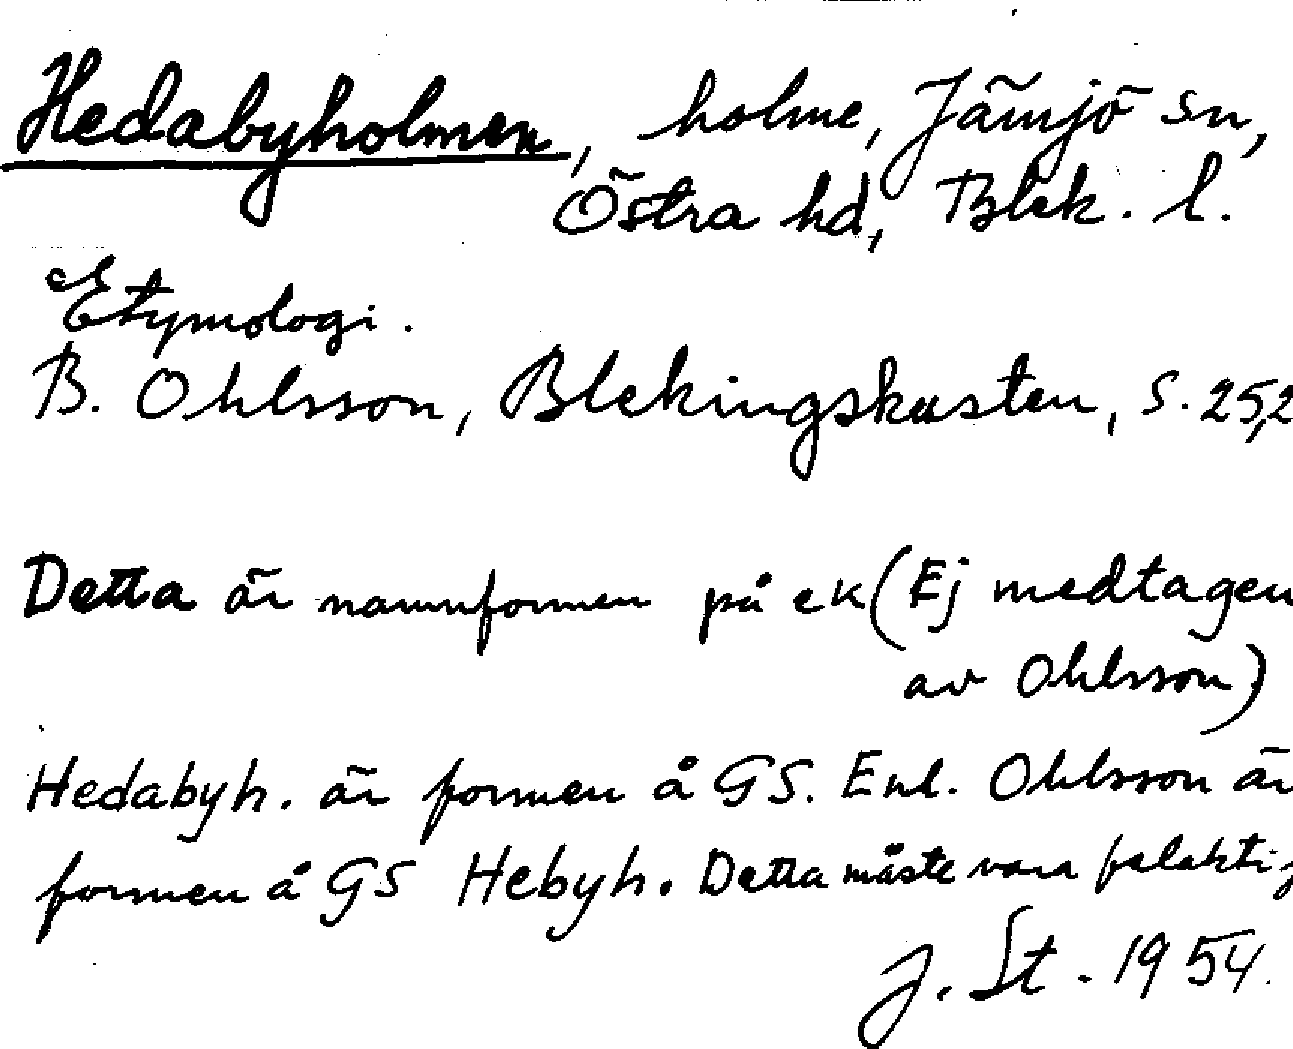 Hedabyholmen, holme, Jämjö sn,
Östra hd, Blek. l.
Etymologi.
B. Ohlsson, Blekingskusten, s. 252
Detta är namnformen på ek (Ej medtagen
av Ohlsson)
Hedabyh. är formen å GS. Enl. Ohlsson är
formen å GS Hebyh. Detta måste vara felaktig
J. St. 1954.